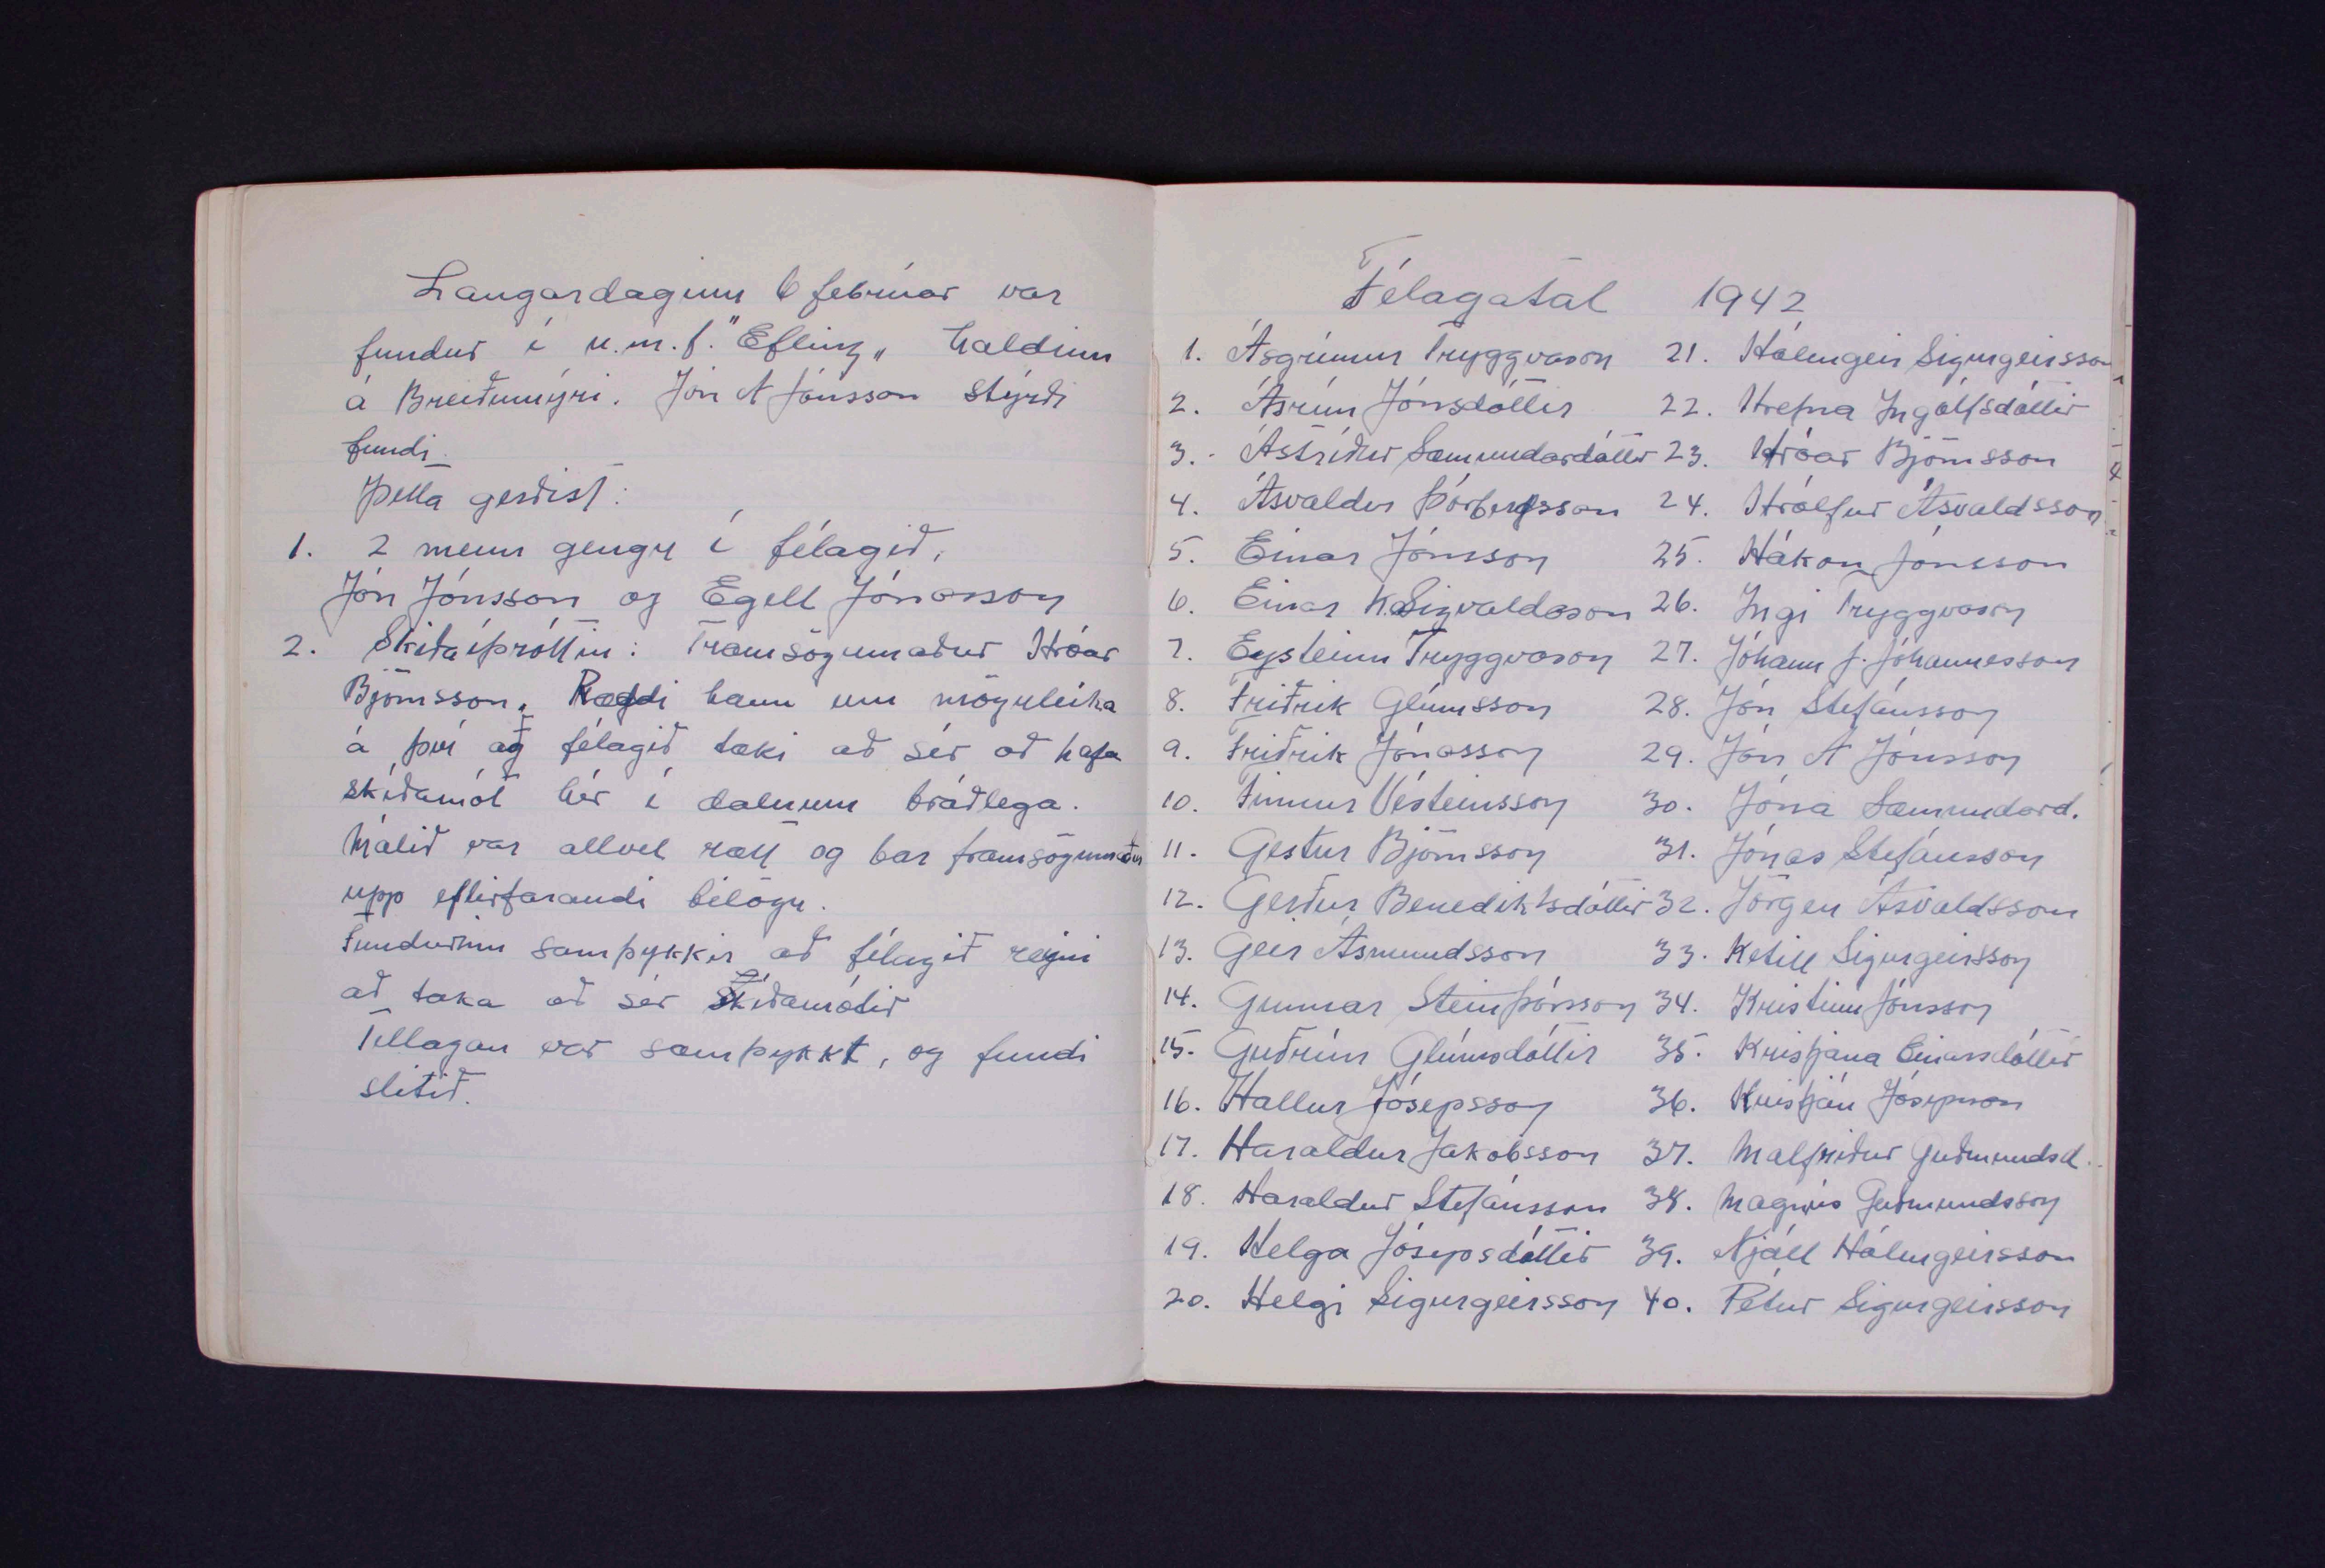 Laugardaginn 6 februar var
fundur í u.m.f. "Efling„ haldinn
á Breiðumýri. Jón A Jónsson stýrði
fundi.
Þetta gerðist:
1. 2 menn gengu í félagið,
Jón Jónsson og Egill Jónasson
2. Skíðaíþróttin: Framsögumaður Hróar
Björnsson. Ræddi hann um möguleika
á því að félagið taki að sér að hafa
skíðamót hér í dalnum bráðlega.
Málið var allvel rætt og bar framsögumaður
upp eftirfarandi tilögu.
Fundurinn samþykkir að félagið reyni
að taka að sér Skíðamótið
Tillagan var samþykkt, og fundi
slitið.
Félagatal 1942
1. Ásgrímur Tryggvason
2. Ásrún Jónsdóttir
3. Ástríður Sæmundardóttir
4. Ásvaldur Þórbergsson
5. Einar Jónsson
6. Einar K. Sigvaldason
7. Eysteinn Tryggvason
8. Friðrik Glúmsson
9. Friðrik Jónasson
10. Finnur Vésteinsson
11. Gestur Björnsson
12. Gerður Benediktsdóttir
13. Geir Ásmundsson
14. Gunnar Steinþórsson
15. Guðrún Glúmsdóttir
16. Hallur Jósepsson
17. Haraldur Jakobsson
18. Haraldur Stefánsson
19. Helga Jósepsdóttir
20. Helgi Sigurgeirsson
21. Hólmgeir Sigurgeirsson
22. Hrefna Ingólfsdóttir
23. Hróar Björnsson
24. Hrólfur Ásvaldsson
25. Hákon Jónsson
26. Ingi Tryggvason
27. Jóhann J. Jóhannesson
28. Jón Stefánsson
29. Jón A Jónsson
30. Jóna Sæmundard.
31. Jónas Stefánsson
32. Jörgen Ásvaldsson
33. Ketill Sigurgeirsson
34. Kristinn Jónsson
35. Kristjana Einarsdóttir
36. Kristján Jósepsson
37. Málfríður Guðmundsd.
38. Magnús Guðmundsson
39. Njáll Hólmgeirsson
40. Pétur Sigurgeirsson